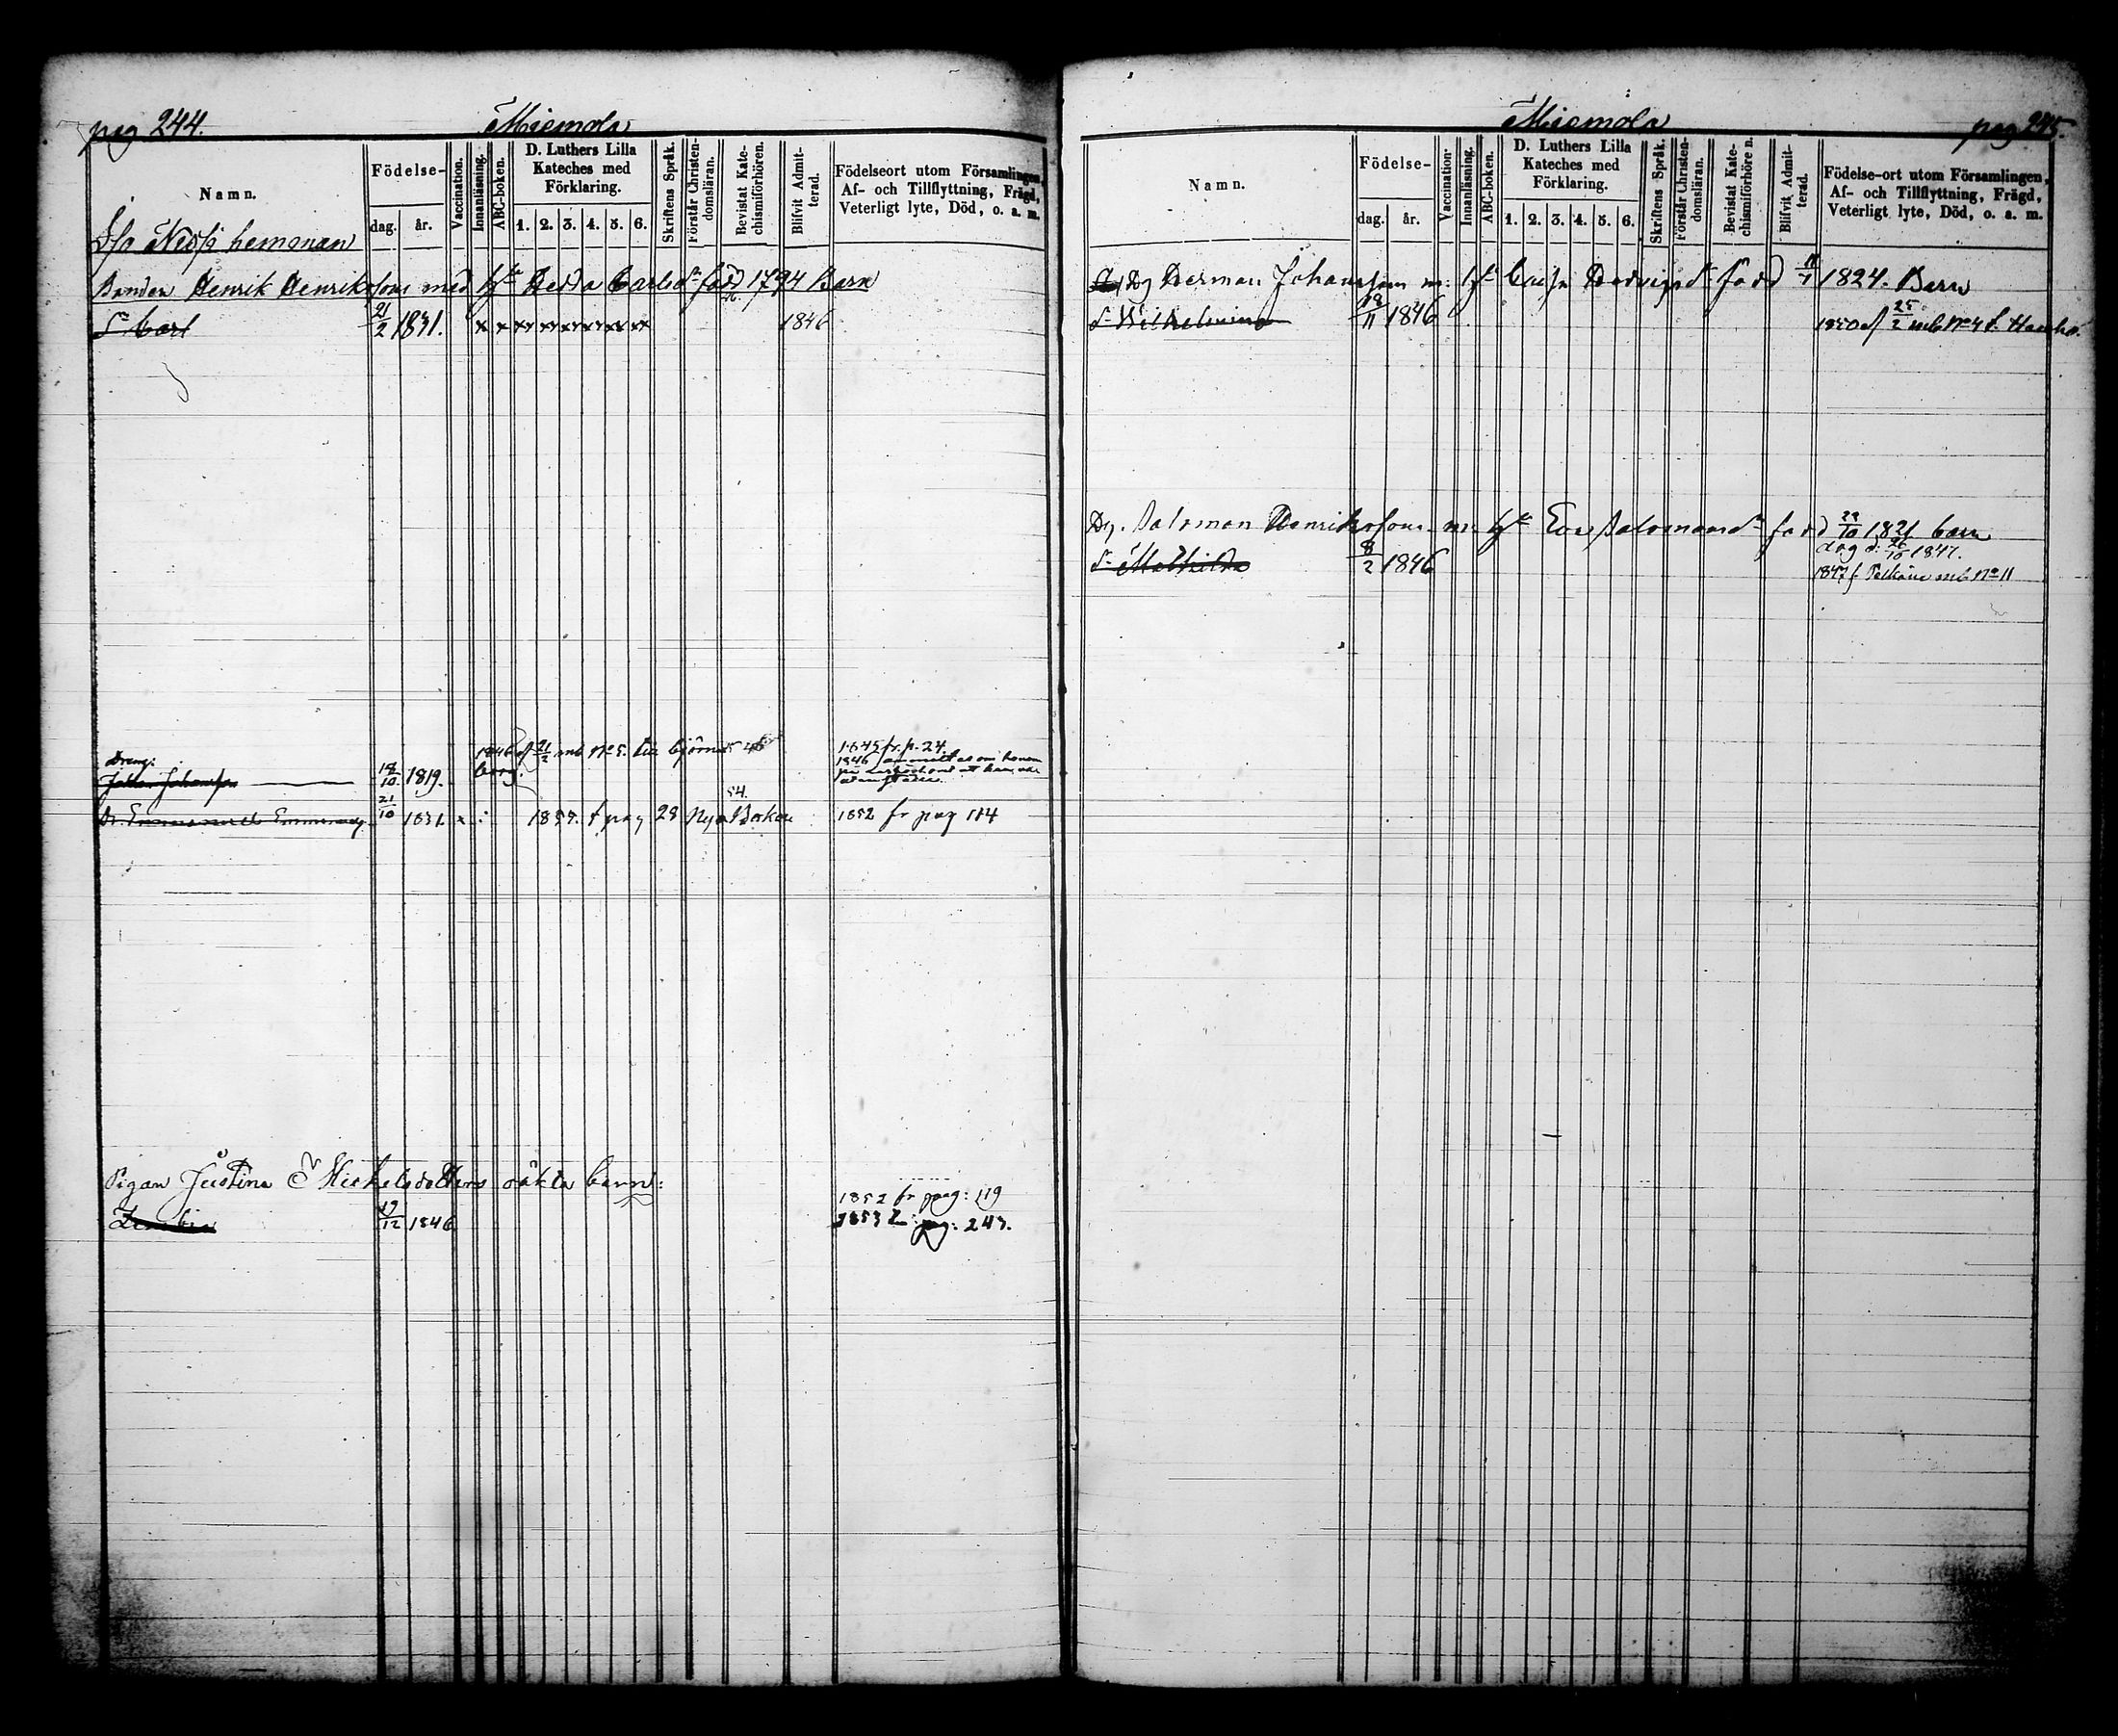 pag 244.
Miemola
Namn.
Födelse-
dag.
år.
Vaccination.
Innanläsning.
ABC-boken.
D. Luthers Lilla
Kateches med
Förklaring.
1. 2. 3. 4. 5. 6.
Skriftens Språk.
Förstår Christen-
domsläran.
Bevistat Kate-
chismiförhören.
Blifvit Admit-
terad.
Födelseort utom Församlingen,
Af- och Tillflyttning, Frägd,
Veterligt lyte, Död, o. a. m.
hemman
Bonden Henrik Henriksson med Hedda Carlsdr född 1794 Barn
Sn Carl 21/2 1831. x x x x x x x x 1846
Dreng:
Johan Johansson 18/10 1819. 1846 af 21/2 mb No 5. till Björne-
borg.
1845 fr. p. 24.
1846
Dr. Emmanuel 21/10 1831 x 1853. t pag 29 Nya Boken 54. 1852 fr pag 114
Pigan Justina Michelsdotters oäkta barn:
17/12 1846
1852 fr pag: 119
1853 t: pag: 243.
Miemola
pag 245.
Namn.
Födelse-
dag.
år.
Vaccination.
Innanläsning.
ABC-boken.
D. Luthers Lilla
Kateches med
Förklaring.
1. 2. 3. 4. 5. 6.
Skriftens Språk.
Förstår Christen-
domsläran.
Bevistat Kate-
chismiförhören.
Blifvit Admit-
terad.
Födelse-ort utom Församlingen,
Af- och Tillflyttning, Frägd,
Veterligt lyte, Död, o. a. m.
Dg Herman Johansson m: Cajsa Hedvigsdr född 11/7 1824. Barn
Dr Wilhelmina 18/11 1846 1850 af 25/2 mb No 4 t.
Dg. Salomon Henriksson m: Eva Salomonsdr född 29/10 1821 barn
Dr Mathilda 8/2 1846
dög d: 26/10 1847.
1847 f Pelkäne mb No 11